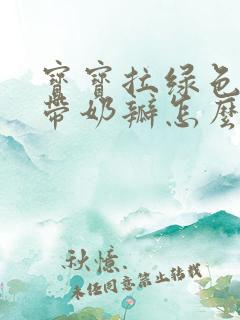 寶寶拉綠色
帶奶瓣怎麼
秋憶.
未经同意禁止转载